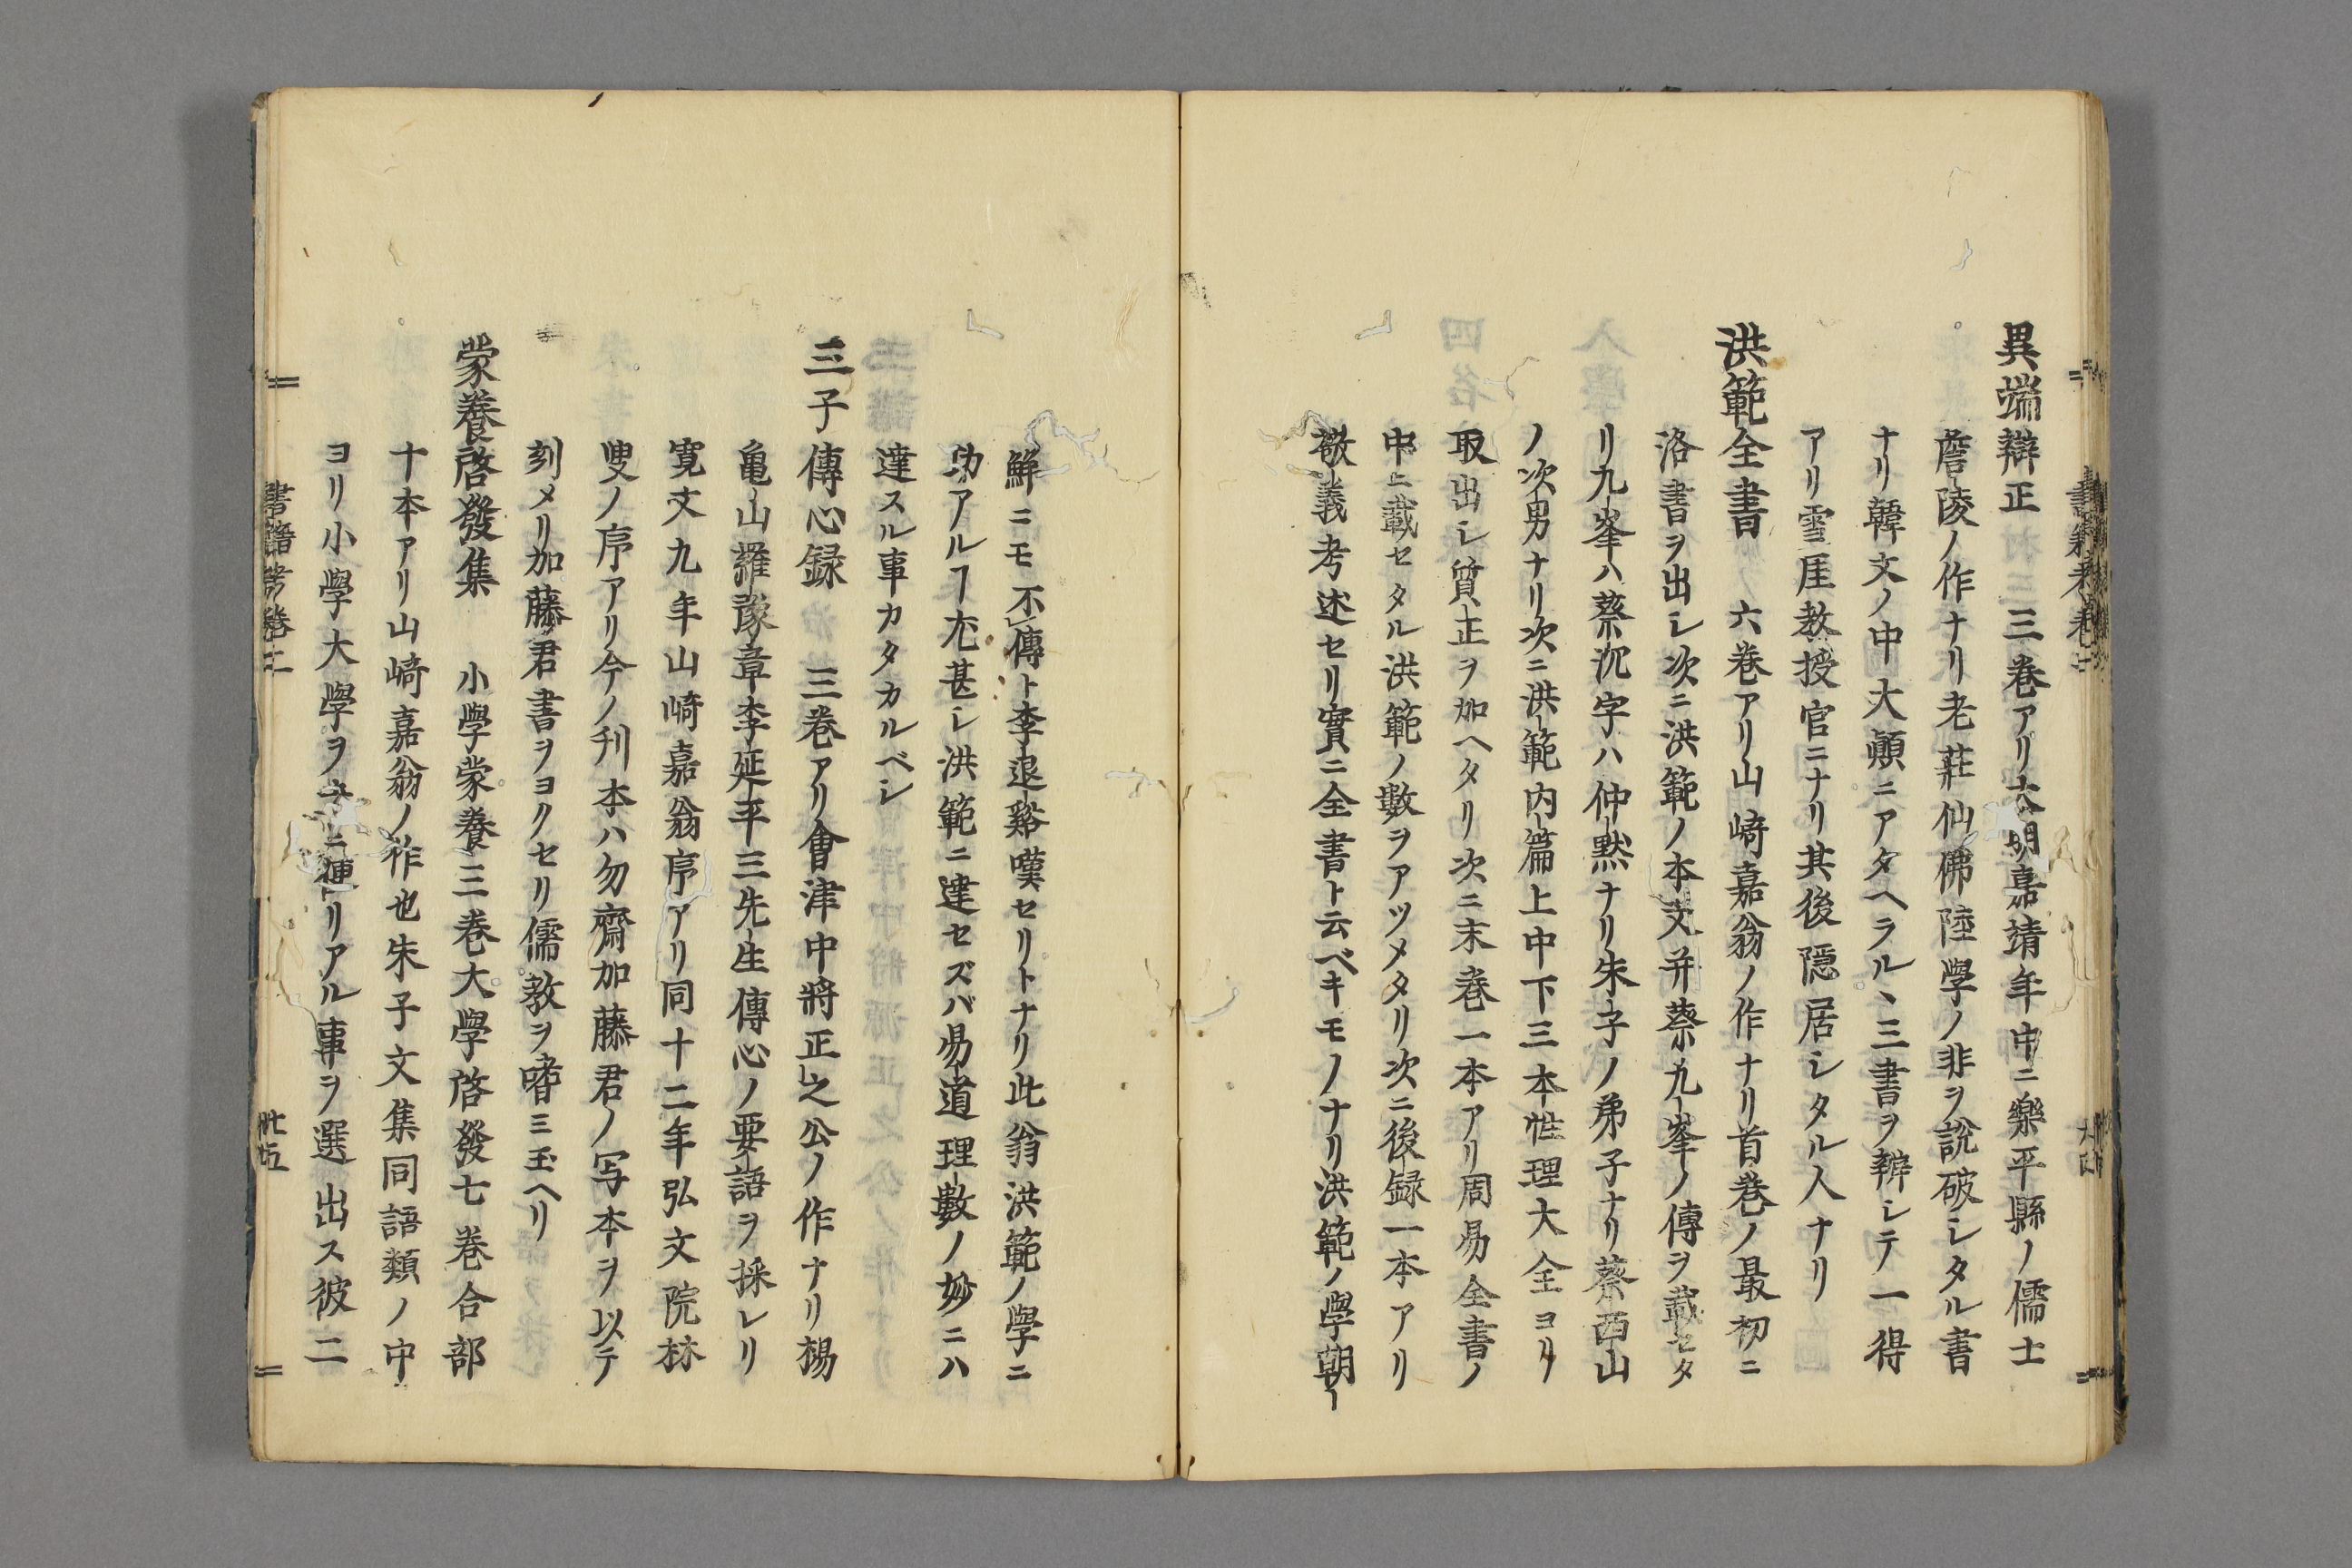 異端辯正　三巻アリ大明嘉靖年中ニ樂平縣ノ儒士
詹陵ノ作ナリ老莊仙佛陸學ノ非ヲ說破シタル書
ナリ韓文ノ中大顚ニアタヘラル丶三書ヲ辨シテ一得
アリ雪厓教授官ニナリ其後隱居シタル人ナリ
洪範全書　六巻アリ山﨑嘉翁ノ作ナリ首巻ノ最初ニ
洛書ヲ出シ次ニ洪範ノ本文并蔡九峯ノ傳ヲ載セタ
リ九峯ハ蔡沉字ハ仲黙ナリ朱子ノ弟子ナリ蔡西山
ノ次男ナリ次ニ洪範内篇上中下三本性理大全ヨリ
取出シ質正ヲ加ヘタリ次ニ末巻一本アリ周易全書ノ
中ニ載セタル洪範ノ數ヲアツメタリ次ニ後録一本アリ
發義考述セリ實ニ全書ト云ベキモノナリ洪範ノ學朝
鮮ニモ不傳ト李退谿嘆セリトナリ此翁洪範ノ學ニ
功アルヿ尤甚シ洪範ニ達セズバ易道理數ノ妙ニハ
達スル事カタカルベシ
三子傳心録　三巻アリ會津中將正之公ノ作ナリ楊
亀山羅豫章李延平三先生傳心ノ要語ヲ採レリ
寛文九年山﨑嘉翁序アリ同十二年弘文院林
叟ノ序アリ今ノ刋本ハ勿齋加藤君ノ写本ヲ以テ
刻メリ加藤君書ヲヨクセリ儒教ヲ嗜ミ玉ヘリ
蒙養啓發集　小學蒙養三巻大學啓發七巻合部
十本アリ山﨑嘉翁ノ作也朱子文集同語類ノ中
ヨリ小學大學ヲニ便リアル事ヲ選出ス彼二
書籍考巻二